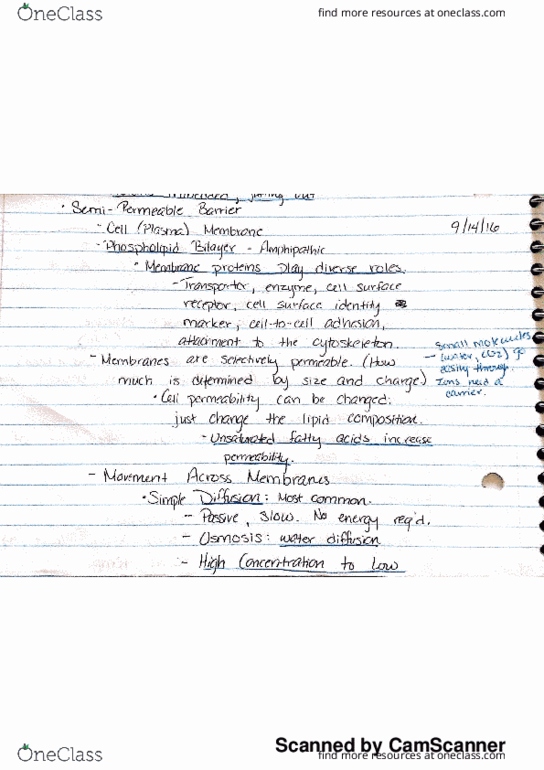 OneClass
find more resources at oneclass.com
• Semi-Permeable Barrier
- Cell (Plasma) Membrane
9/14/16
- Phospholipid Bilayer - Amphipathic
• Membrane proteins play diverse roles.
- Transporter, enzyme, cell surface
receptor, cell surface identity
marker, cell-to-cell adhesion,
attachment to the cytoskeleton.
- Membranes are selectively permeable. (How
much is determined by size and charge)
small molecules
- (water, CO2) go
easily through.
Ions need a
carrier.
• Cell permeability can be changed:
just change the lipid composition.
- Unsaturated fatty acids increase
permeability.
- Movement Across Membranes
• Simple Diffusion: Most common.
- Passive, slow. No energy req'd.
- Osmosis: water diffusion
- High Concentration to Low
Scanned by CamScanner
OneClass
find more resources at oneclass.com